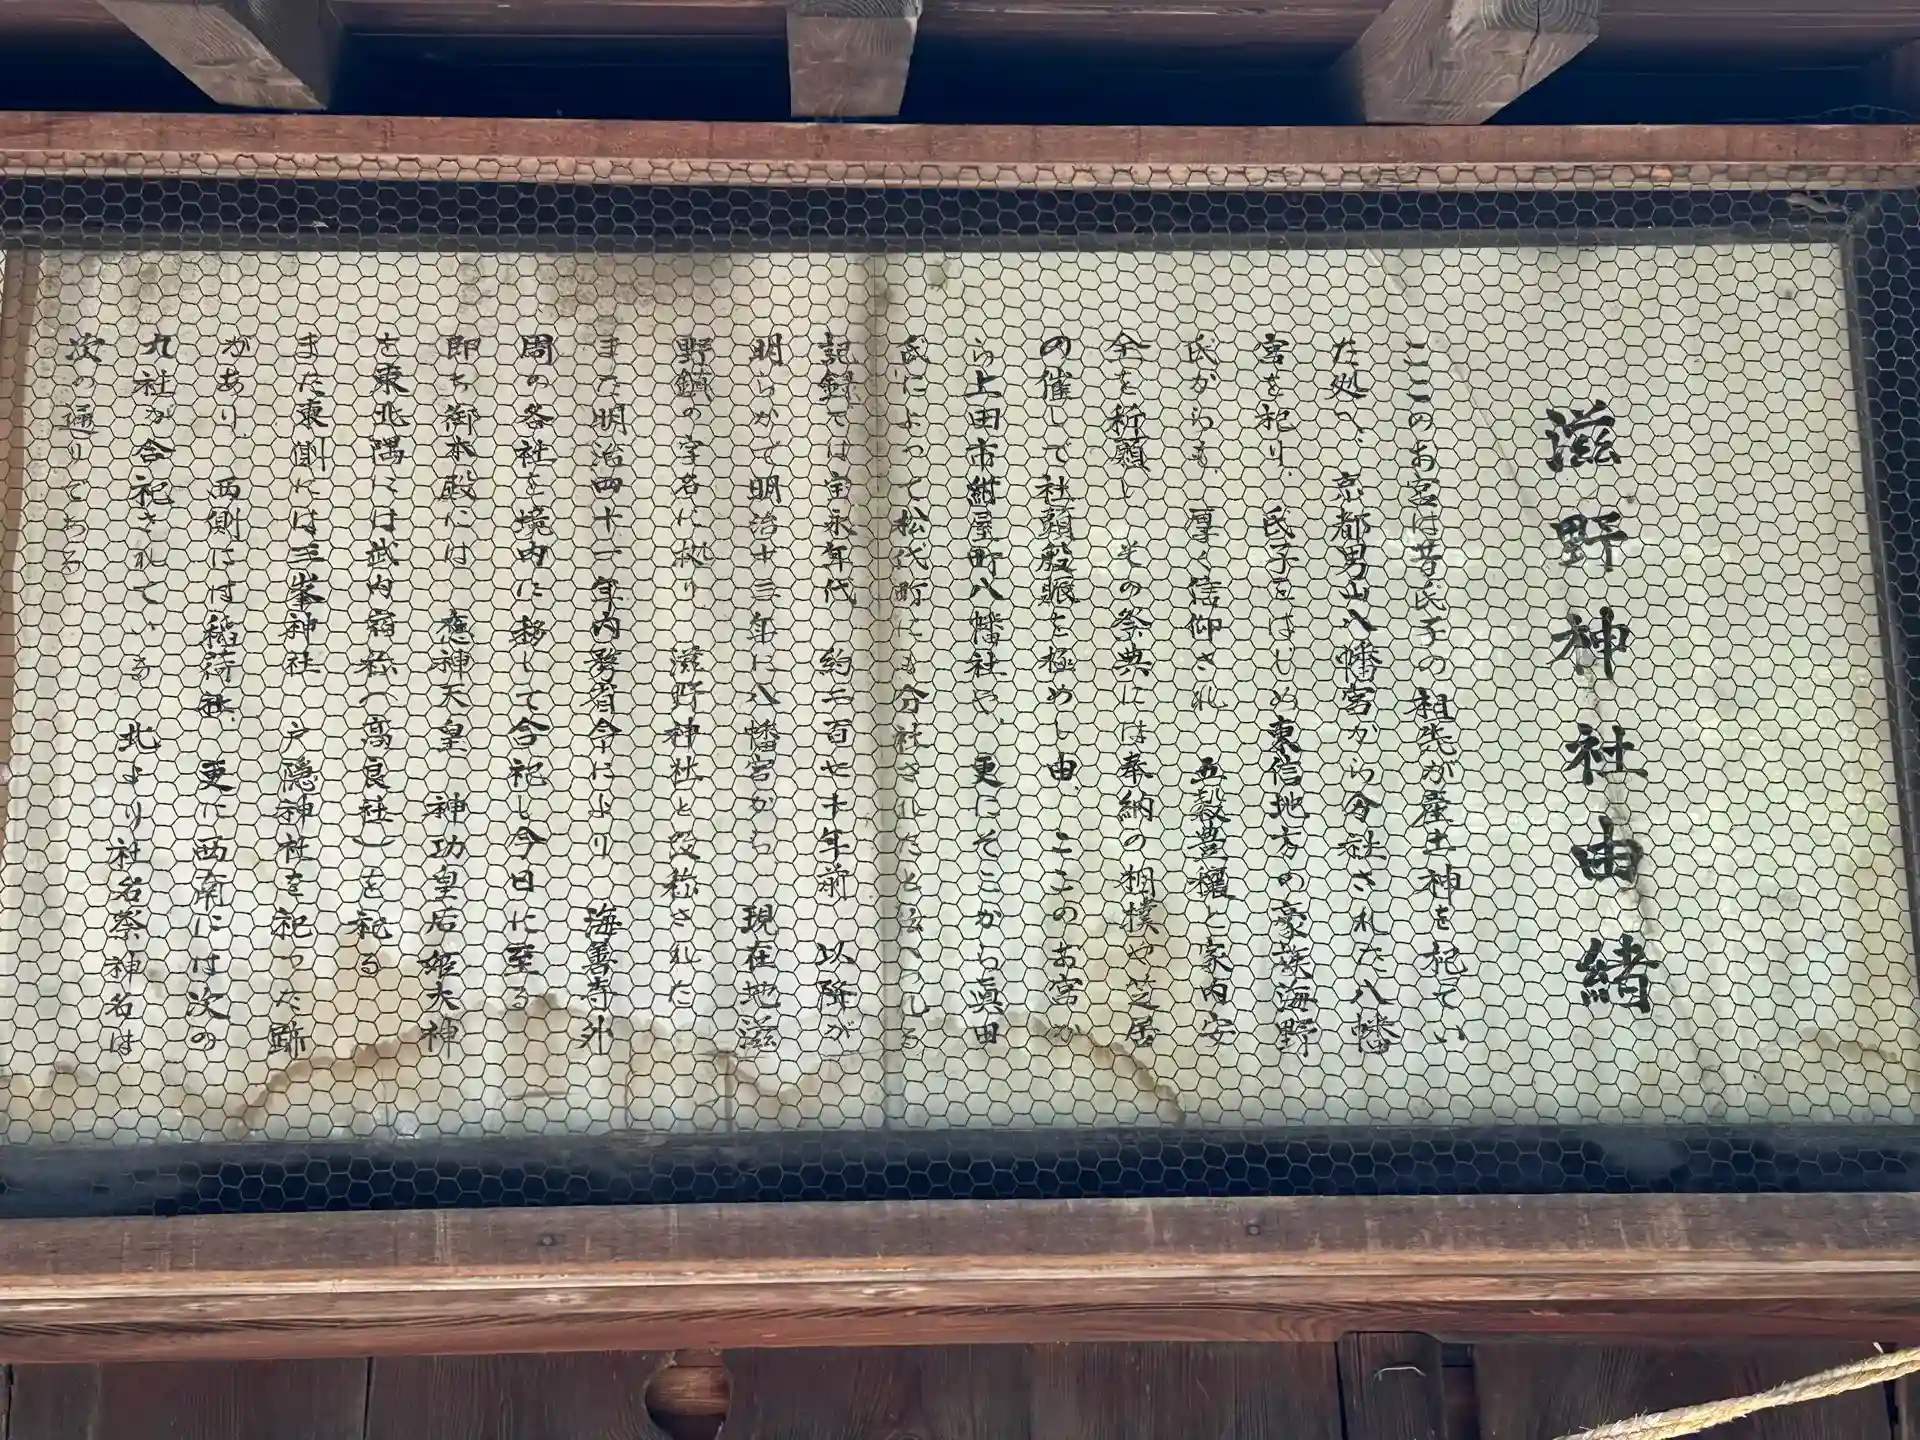 滋野神社由緒
ここのお宮は昔氏子の祖先が産土神を祀てい
た処へ、京都男山八幡宮から分社された八幡
宮を祀り、氏子をはじめ東信地方の豪族海野
氏からも、厚く信仰され 五穀豊穣と家内安
全を祈願し その祭典には奉納の相撲や芝居
の催しで社頭殷賑を極めし由、ここのお宮か
ら上田市紺屋町八幡社や、更にそこから眞田
氏によって松代町にも分社されたと伝へらる
記録では宝永年代 約二百七十年前 以降が
明らかで明治廿三年に八幡宮から 現在地滋
野鎮の字名に拠り 滋野神社と改称された
また明治四十一年内務省令により 海善寺外
周の各社を境内に移して合祀し今日に至る
即ち御本殿には 應神天皇 神功皇后 姫大神
を東北隅には武内宿祢(高良社)を祀る
また東側には三峯神社 戸隠神社を祀った跡
があり、西側には稲荷社、更に西南には次の
九社が合祀されている 北より社名祭神名は
次の通りである